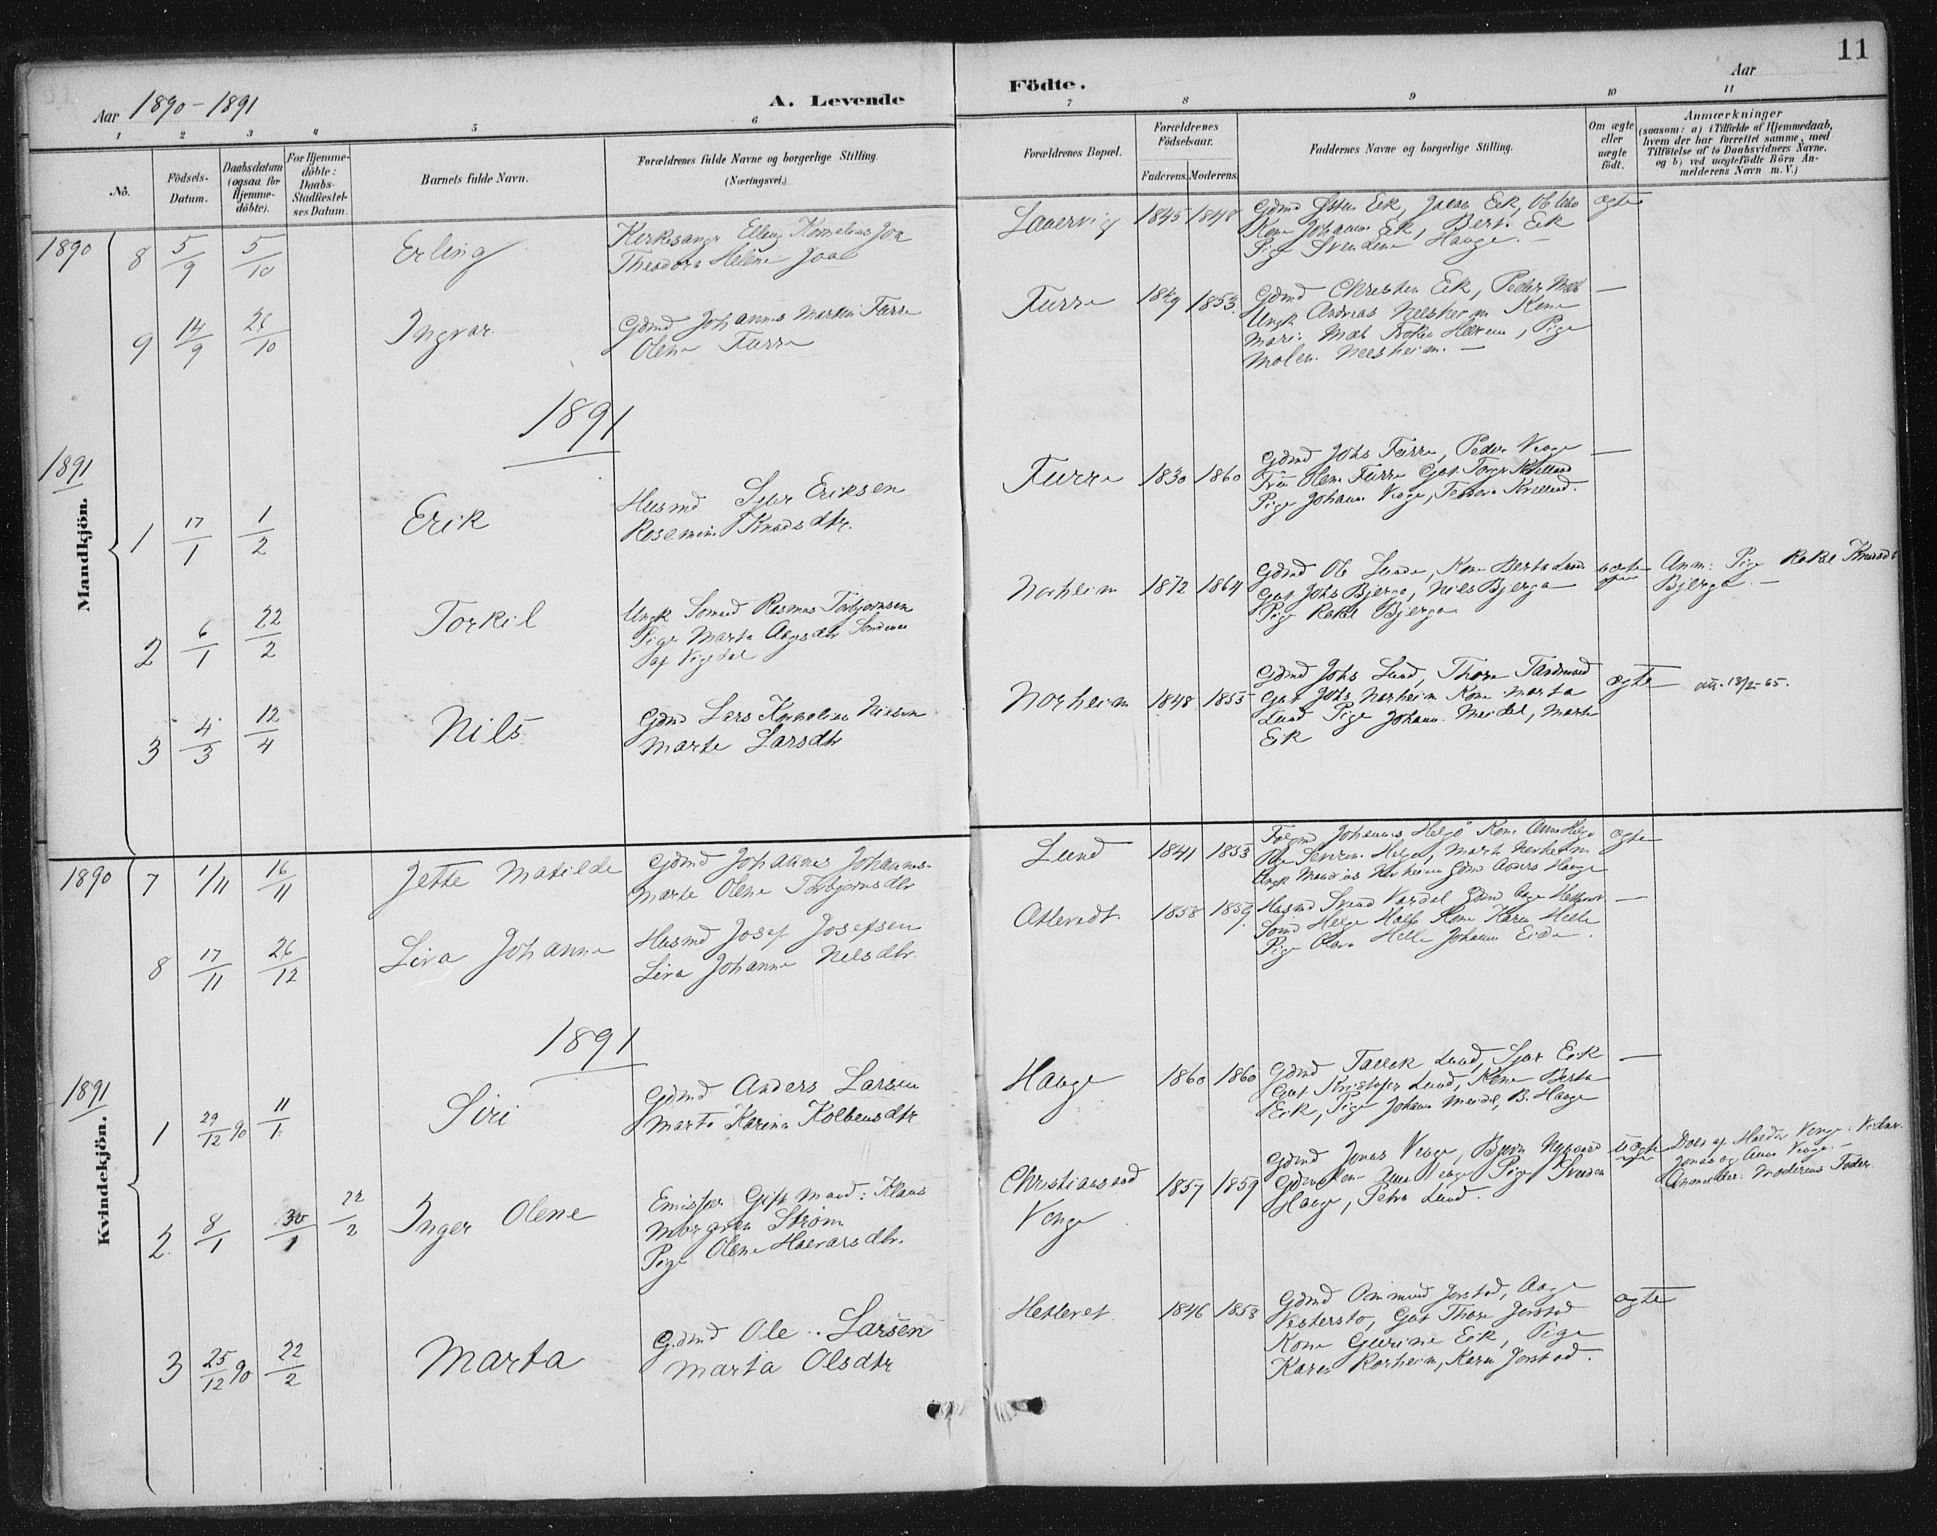 11
Aar 1890-1891
A. Levende
Födte.
Aar
1 2 3 4 5 6 7 8 9 10 11
No.
Födsels-Datum.
Daabsdatum (ogsaa for Hjemmedöbte).
For Hjemmedöbte: Daabs-Stadfæstelses Datum.
Barnets fulde Navn.
Forældrenes fulde Navne og borgerlige Stilling. (Næringsvei.)
Forældrenes Bopæl.
Forældrenes Födselsaar.
Faderens. Moderens.
Faddernes Navne og borgerlige Stilling.
Om ægte eller uægte födt.
Anmærkninger
(saasom: a) i Tilfælde af Hjemmedaab,
hvem der har forrettet samme, med
Tilföielse af to Daabsvidners Navne,
og b) ved uægtefödte Börn An-
melderens Navn m. V.)
Mandkjön.
1890 8 5/9 5/10 Erling
Kirkesanger Elling Kornelius Joa
Theodora Helene Joa
1845 1848
Gdmd Eik, Jacob Eik,
Kone Johanne Eik, Berta Eik
Pige Svendine Hauge. -
ægte
9 14/9 26/10 Ingvar
Gdmd Johannes Martin Furre
Olene Furre
Furre 1849 1853.
Gdmd Christen Eik, Peder
Ungk Andreas Kone
Pige
-
1891
1891
1 17/1 1/2 Erik
Husmd Sjur Eriksen
Knudsdtr.
Furre 1830 1860
Gdmd Johs Furre, Peder Venge
Fru Olene Furre Gat
Pige Johanne Venge,
-
2 6/1 22/2 Torkil
Ungk Sömd Rasmus Torbjørnsen
Pige Marta
af Vigdal
Norheim 1872 1864
Gdmd Ole Lunde, Kone Berta Lunde
Gat Johs Bjerga, Nils Bjerga
Pige Rakel Bjerga
uægte
Anm: Pige Rakel Knudsdtr
Bjerga. -
3 4/3 12/4 Nils
Gdmd Lars Kornelius Nilsen
Marta Larsdtr
Norheim 1848 1855
Gdmd Johs Lund, Thore
Gat Johs Norheim Kone Marta
Lund Pige Johanne Meidel, Marta
Eik
ægte
att. 18/2-65.
Kvindekjön.
1890 7 1/11 16/11 Jette Matilde
Gdmd Johannes Johannes-
Marte Olene Torbjørnsdtr
Lund 1841 1853
Johannes Helgö Kone Anna Helgö
Pige Severine Helgö, Marta Norheim
Ungk Mandius Norheim Gdmd Anders Hauge
ægte
8 17/11 26/12 Lira Johanne
Husmd Josef Josefsen
Lira Johanne Nilsdtr
1858 1859.
Husmd Svend Vardal Gdmd Aage
Helge Kone Karen Helle
Pige Olava Helle Johanne Eide.
-
1891
1891
1 29/12 90 11/1 Siri
Gdmd Anders Larsen
Marta Karine Kolbensdtr
Hauge 1860 1860
Gdmd Tallek Lund, Sjur Eik
Gat Kristofer Lund, Kone Berta
Eik, Pige Johanne Meidel, B. Hauge
-
2. 8/1 30/1 22/2 Inger Olene
Emissær Gift mand: Klaus
Strøm
Pige Olene Halvarsdtr.
Christianssand
Venge
1857 1859
Gdmd Jonas Venge, Bjørn Nygaard
Kone Anna Venge Pige
Hauge, Petra Lund.
uægte
Døbt af Halvor Venge: Vidner
Jonas og Anna Venge. -
Anmelder. Moderens Fader.
3 25/12 90 22/2 Marta
Gdmd Ole Larsen
Marta Olsdtr
Hetlevet 1846 1858
Gdmd Ommund Jørstad, Aage
Vestersto, Gat Thore Jørstad
Kone Gurine Eik, Pige
Karen Norheim, Karen Jørstad.
ægte